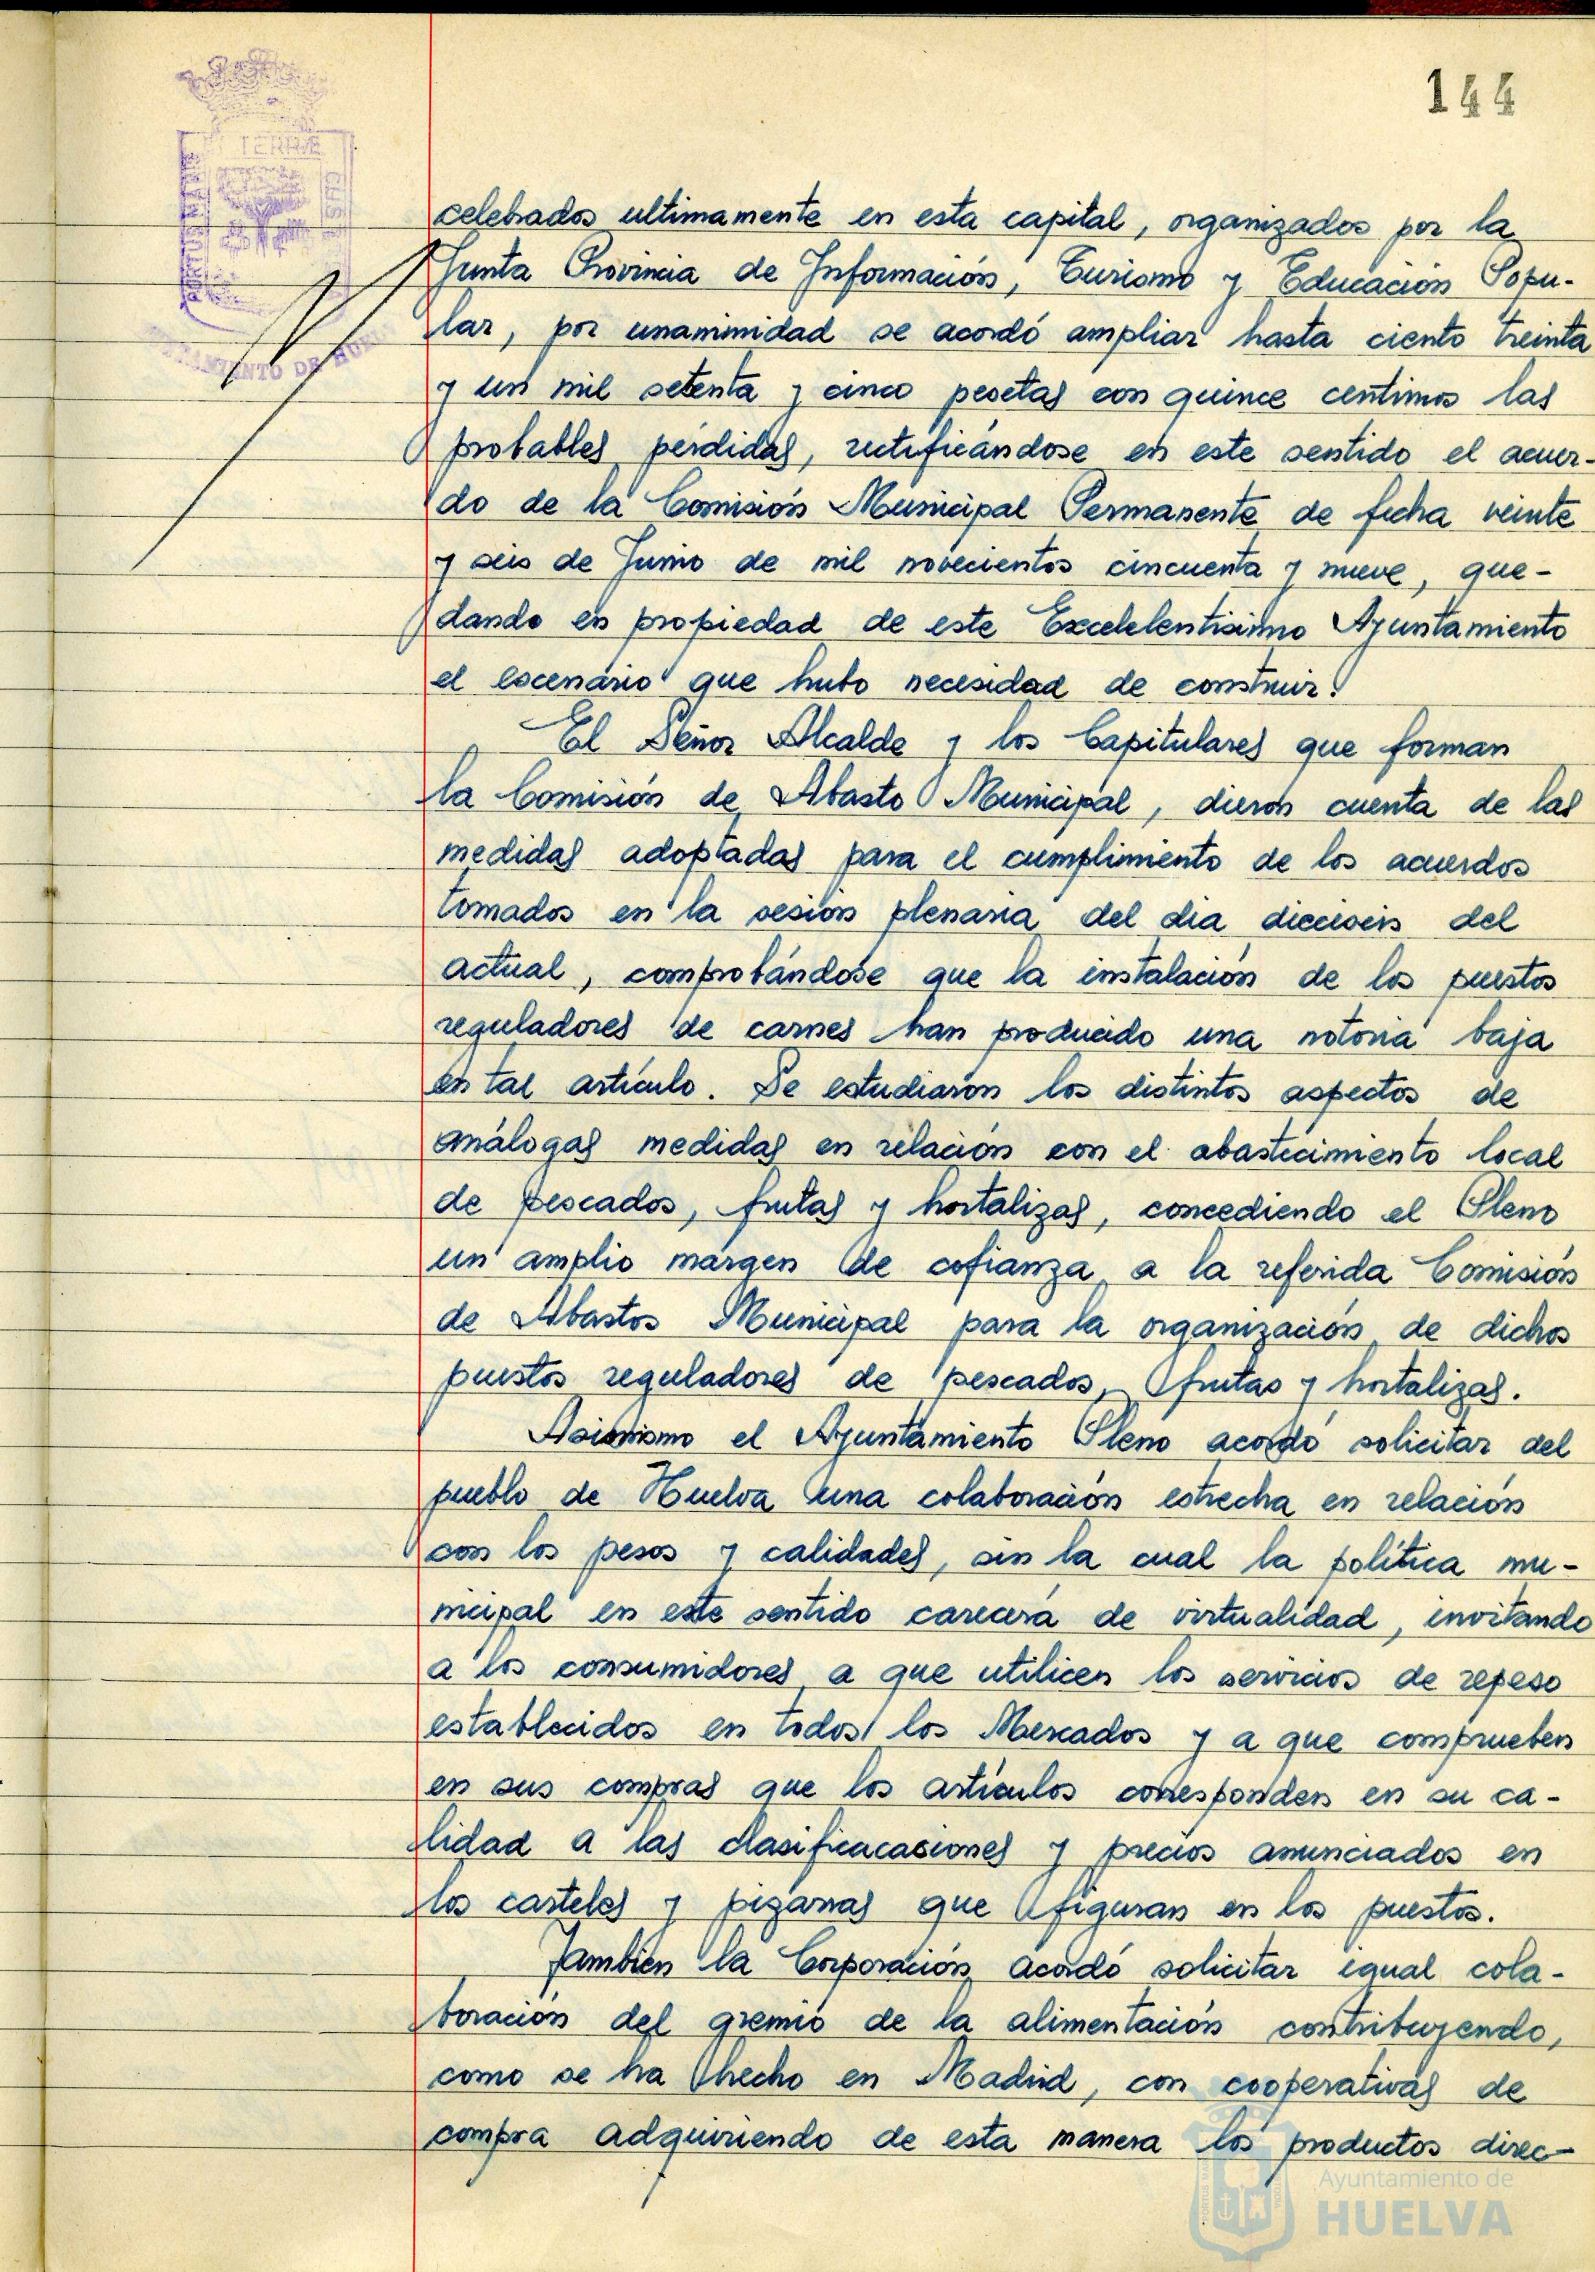 144
TERRÆ
PORTUS MARIS
celebrados ultimamente en esta capital, organizados por la
Junta Provincia de Información, Turismo y Educación Popu-
lar, por unanimidad se acordó ampliar hasta ciento treinta
y un mil setenta y cinco pesetas con quince centimos las
probables pérdidas, rectificándose en este sentido el acuer-
do de la Comisión Municipal Permanente de fecha veinte
y seis de Junio de mil novecientos cincuenta y nueve, que-
dando en propiedad de este Excelelentisimo Ayuntamiento
el escenario que hubo necesidad de construir.
El Señor Alcalde y los Capitulares que forman
la Comisión de Abasto Municipal, dieron cuenta de las
medidas adoptadas para el cumplimiento de los acuerdos
tomados en la sesión plenaria del dia dieciseis del
actual, comprobándose que la instalación de los puestos
reguladores de carnes han producido una notoria baja
en tal artículo. Se estudiaron los distintos aspectos de
análogas medidas en relación con el abastecimiento local
de pescados, frutas y hortalizas, concediendo el Pleno
un amplio margen de cofianza a la referida Comisión
de Abastos Municipal para la organización de dichos
puestos reguladores de pescados, frutas y hortalizas.
Asimismo el Ayuntamiento Pleno acordó solicitar del
pueblo de Huelva una colaboración estrecha en relación
con los pesos y calidades, sin la cual la política mu-
nicipal en este sentido carecerá de virtualidad, invitando
a los consumidores a que utilicen los servicios de repeso
establecidos en todos los Mercados y a que comprueben
en sus compras que los artículos corresponden en su ca-
lidad a las clasificacasiones y precios anunciados en
los carteles y pizarras que figuran en los puestos.
Tambien la Corporación acordó solicitar igual cola-
boración del gremio de la alimentación contribuyendo,
como se ha hecho en Madrid, con cooperativas de
compra adquiriendo de esta manera los productos direc-
Ayuntamiento de
HUELVA